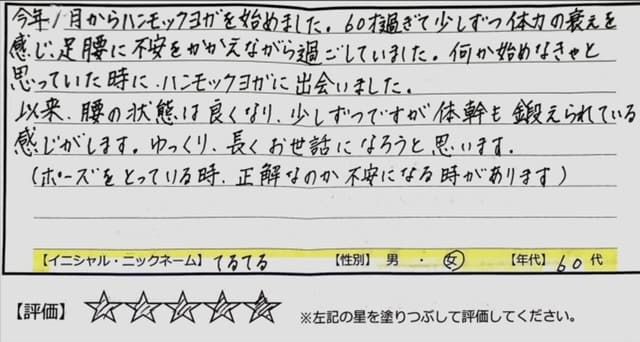 今年1月からハンモックヨガを始めました。60才過ぎて少しずつ体力の衰えを
感じ、足腰に不安をかかえながら過ごしていました。何か始めなきゃと
思っていた時に、ハンモックヨガに出会いました。
以来、腰の状態は良くなり、少しずつですが体幹も鍛えられている
感じがします。ゆっくり、長くお世話になろうと思います。
(ポーズをとっている時、正解なのか不安になる時があります)
【イニシャル・ニックネーム】 てるてる 【性別】 男 ・ 女 【年代】 60 代
【評価】 ☆☆☆☆☆ ※左記の星を塗りつぶして評価してください。